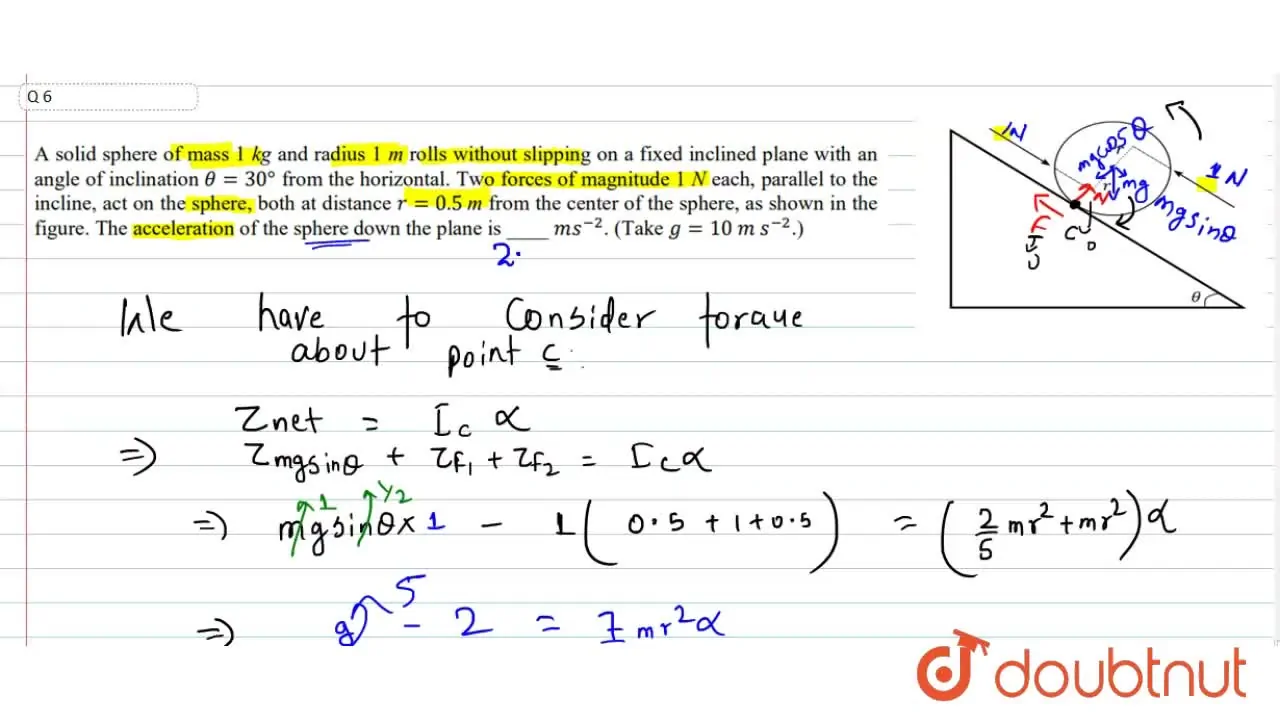 Q 6
A solid sphere of mass 1 kg and radius 1 m rolls without slipping on a fixed inclined plane with an
angle of inclination θ = 30° from the horizontal. Two forces of magnitude 1 N each, parallel to the
incline, act on the sphere, both at distance r = 0.5 m from the center of the sphere, as shown in the
figure. The acceleration of the sphere down the plane is ____ ms⁻². (Take g = 10 m s⁻².)
2.
1N
mgcos θ
0.5
1 N
mg
mgsinθ
r
F
C
θ
We have to Consider torque
about point C
τnet = I_c α
⇒ τmgsinθ + τF₁ + τF₂ = I_c α
1 1/2
⇒ mgsinθ × 1 − 1 ( 0.5 + 1 + 0.5 ) = ( 2/5 mr² + mr² ) α
5
⇒ g − 2 = 7 mr² α
doubtnut